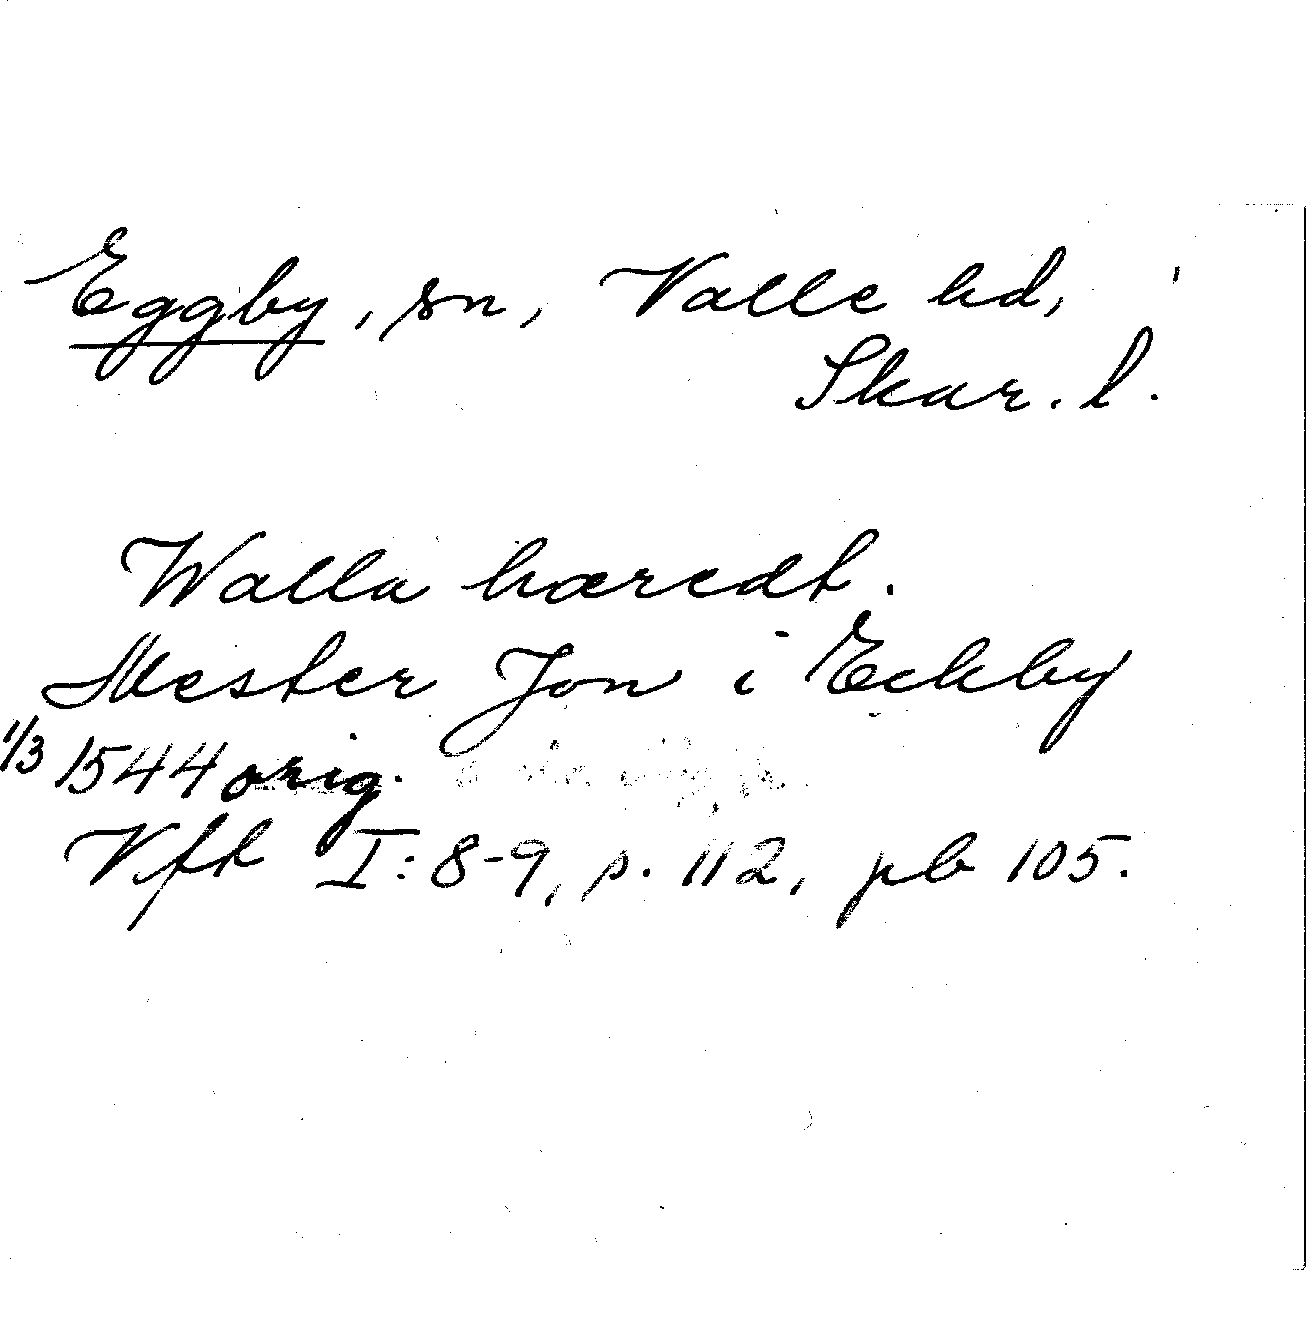 Eggby, sn, Valle hd,
Skar. l.
Walla hæredt.
Mester Jon i Eckby
1/3 1544 orig.
Vft I: 8-9, p. 112, pb 105.